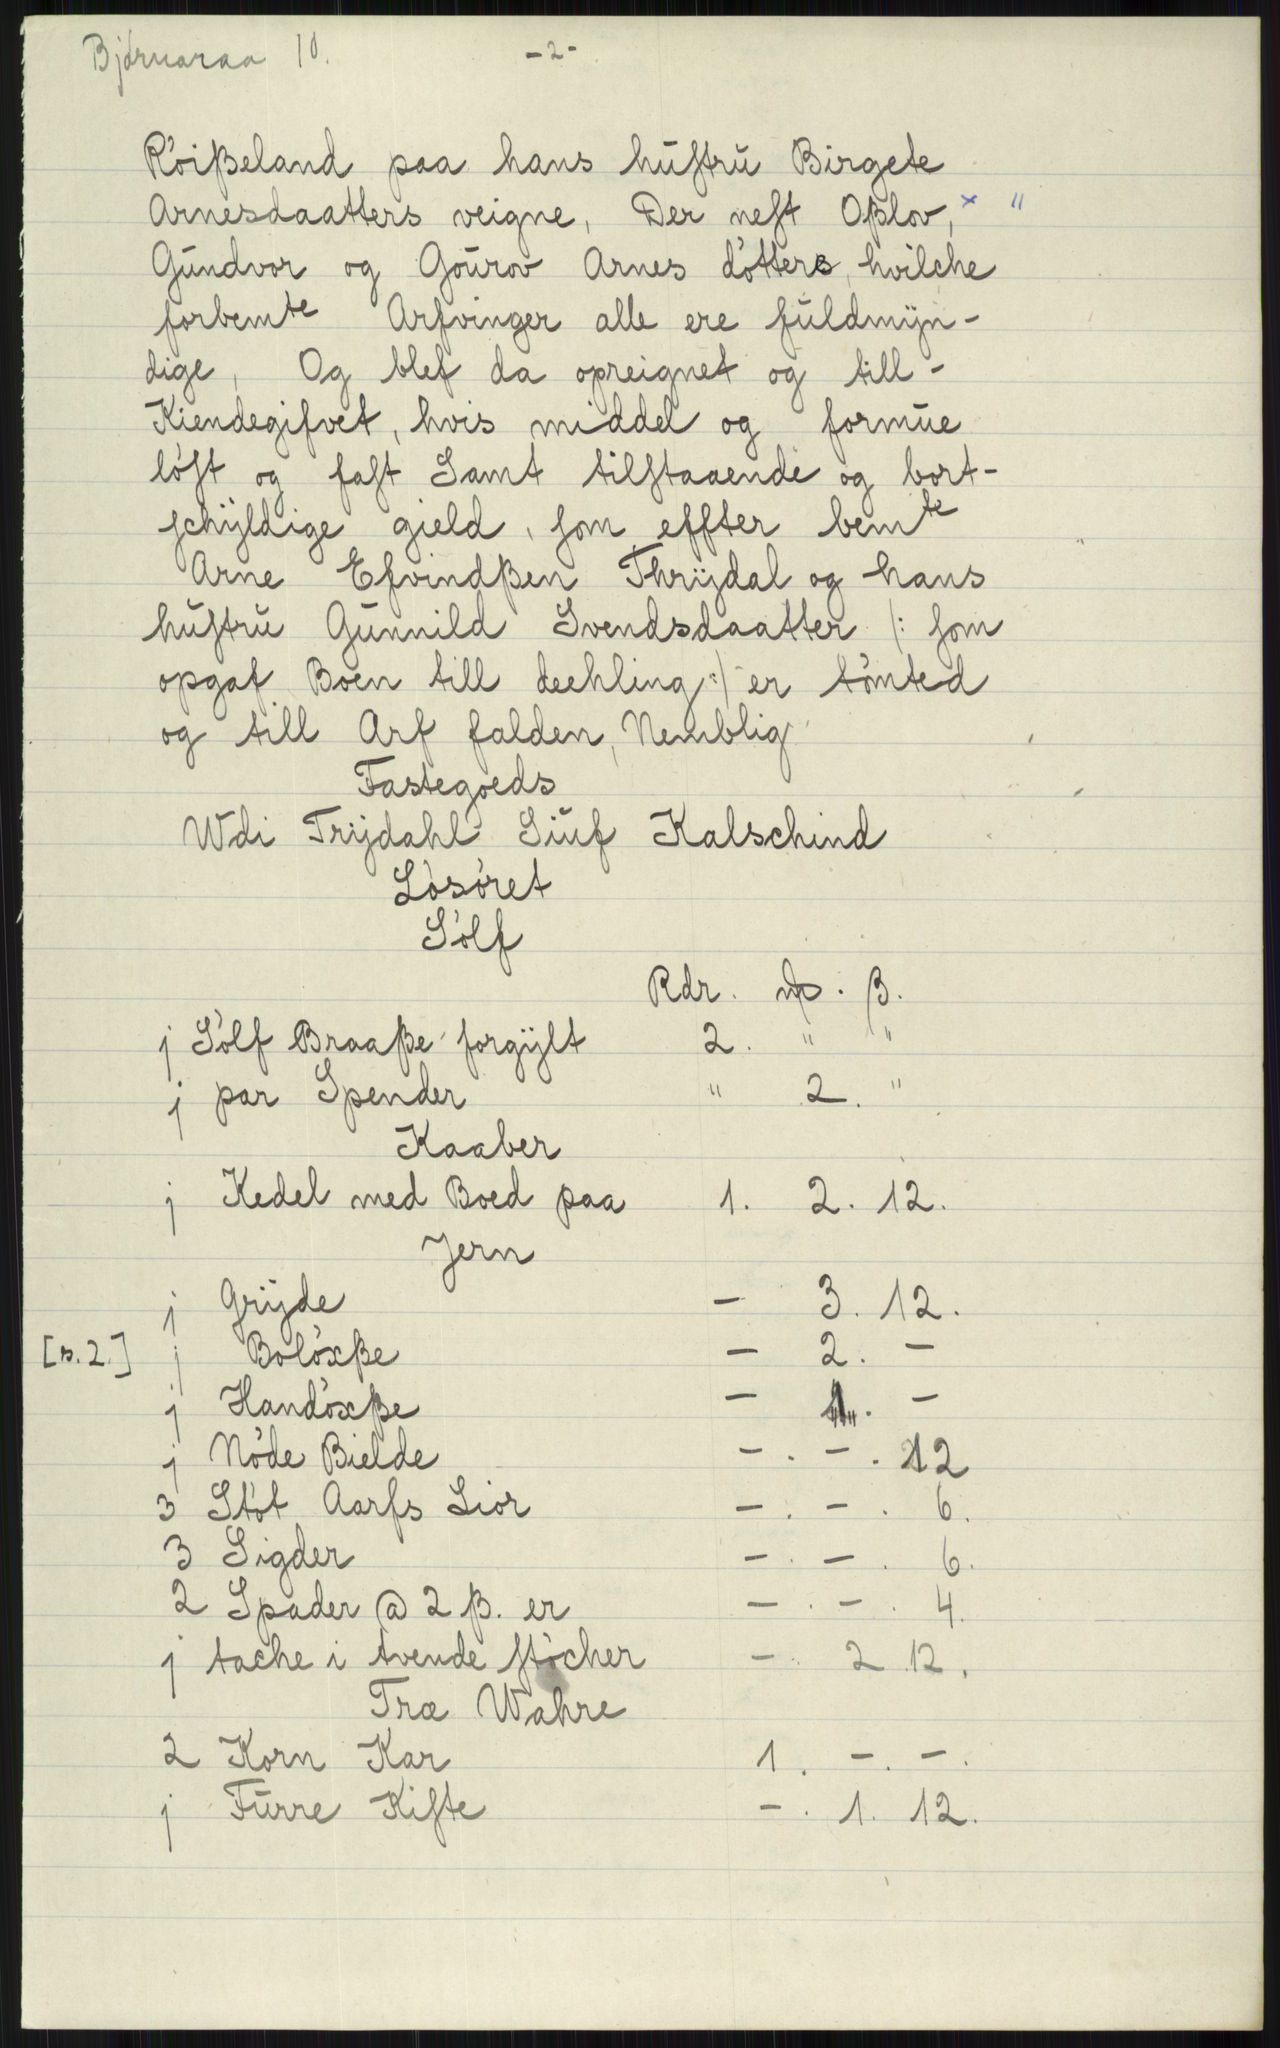 Bjårvaraa 10.
- 2 -
Röißeland paa hans hustru Birgete
Arnesdaatters veigne, Der nest Oßlov, x "
Gundvor og Gourov Arnes dötters, hvilche
forbemte Arfvinger alle ere fuldmÿn-
dige, Og blef da opreignet og till-
Kiendegifvet, hvis middel og formue
löst og fast Samt tilstaaende og bort-
schÿldige gield, som effter bemte
Arne Efvindßen Thrÿdal og hans
hustru Gunnild Svendsdaatter /: som
opgaf Boen till deehling :/ er tömted
og till Arf falden, Nemblig
Fastegoeds
Wdi Trÿdahl Siuf Kalschind
Lösöret
Sölf
Rdr. mk. ß.
j Sölf Braaße forgÿlt 2. " "
j par Spender " 2. "
Kaaber
j Kedel med Boed paa 1. 2. 12.
Jern
j Grÿde - 3. 12.
[s. 2.] j Bolöxße - 2. -
j Handöxße - 1. -
j Nöde Bielde - . - . 12
3 Stöt Aarfs Lior - . - . 6.
3 Sigder - . - . 6.
2 Spader @ 2 ß. er - . - . 4.
j tache i tvende stöcher - . 2 12.
Træ Wahre
2 Korn Kar 1. - . - .
j Furre Kiste - . 1. 12.